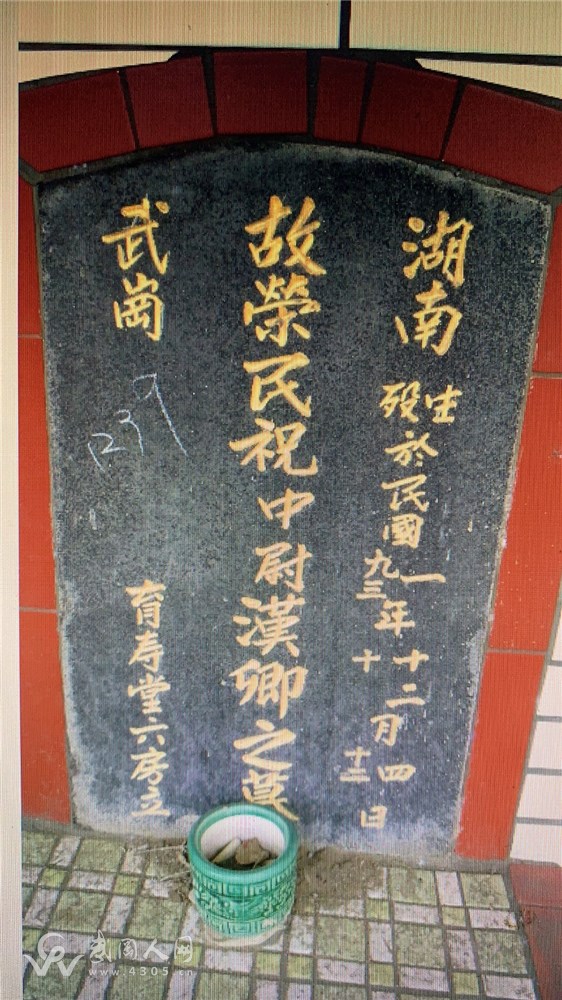 湖南 生殁於民國一九三年十二十月四十二日
故榮民祝中尉漢卿之墓
武崗
1239
育寿堂六房立
武冈人网
www.4305.cn